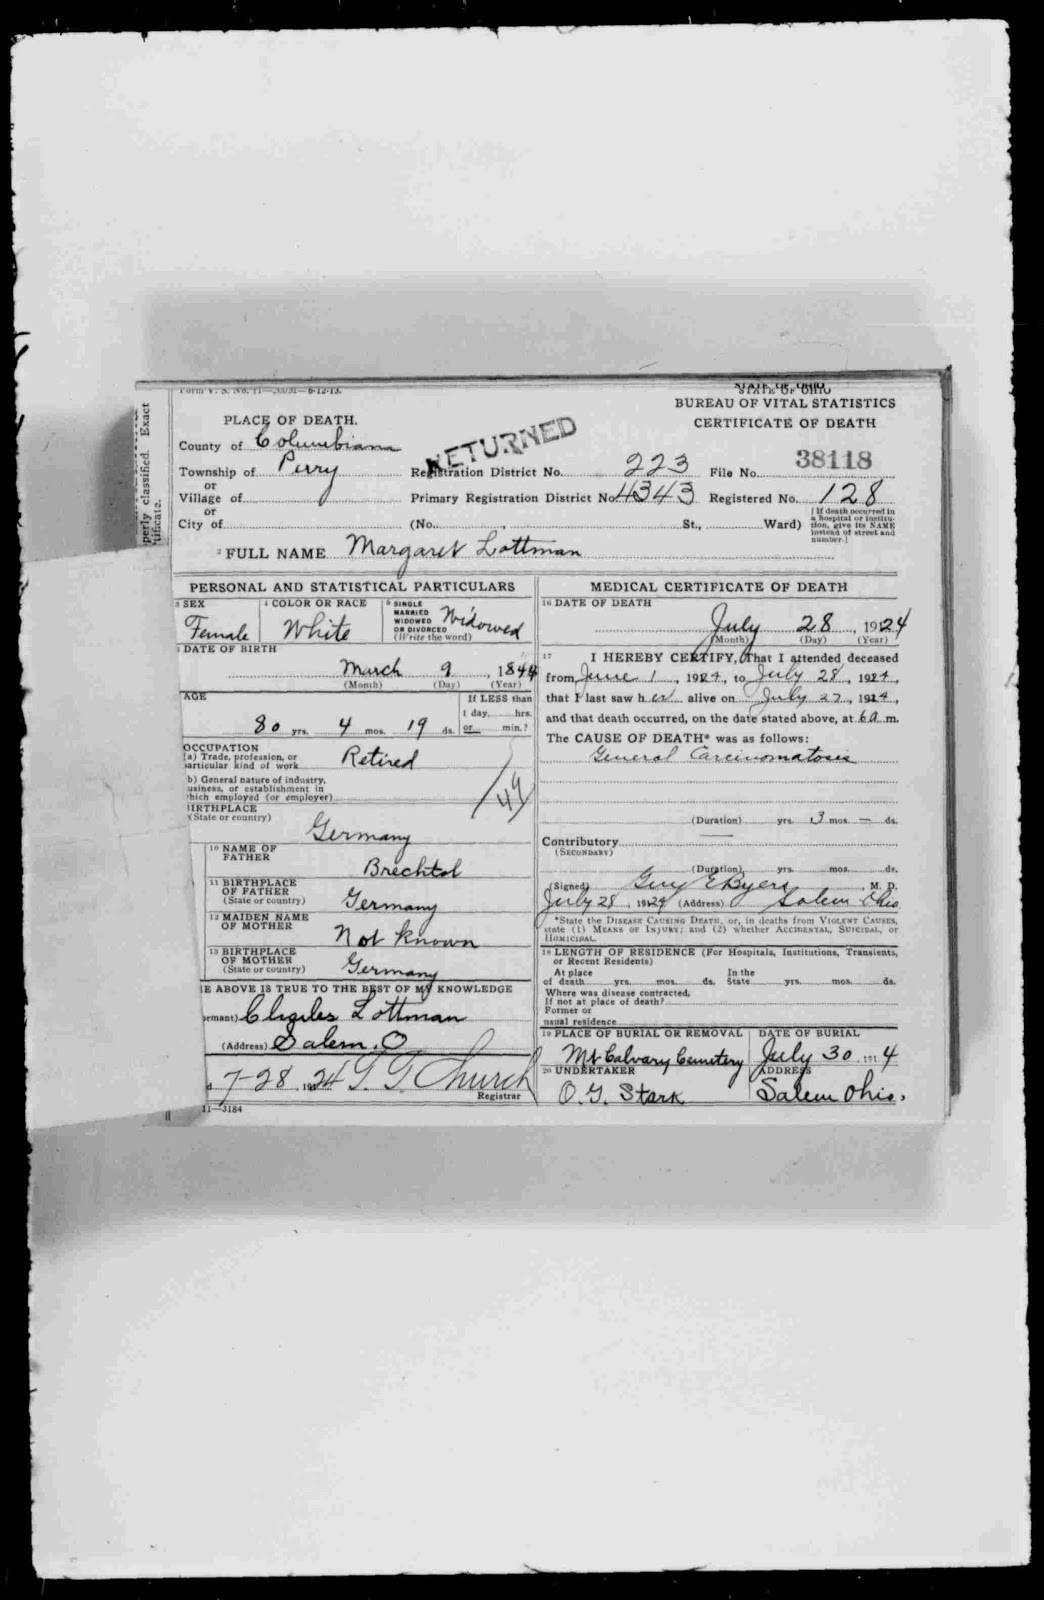 Form V. S. No. 11—
STATE OF OHIO
BUREAU OF VITAL STATISTICS
CERTIFICATE OF DEATH
PLACE OF DEATH.
County of Columbiana
RETURNED
Township of Perry
Registration District No. 223 File No. 38118
or
Village of
Primary Registration District No. 4343 Registered No. 128
or
City of (No. , St., Ward)
[If death occurred in
a hospital or institu-
tion, give its NAME
instead of street and
number.]
2 FULL NAME Margaret Lottman
perly classified. Exact
tificate.
PERSONAL AND STATISTICAL PARTICULARS
3 SEX
Female
4 COLOR OR RACE
White
5 SINGLE
MARRIED
WIDOWED
OR DIVORCED
(Write the word)
Widowed
DATE OF BIRTH
March 9, 1844
(Month) (Day) (Year)
AGE
80 yrs. 4 mos. 19 ds.
If LESS than
1 day, hrs.
or min.?
OCCUPATION
(a) Trade, profession, or
particular kind of work
Retired
b) General nature of industry,
usiness, or establishment in
which employed (or employer)
49
BIRTHPLACE
(State or country)
Germany
10 NAME OF
FATHER
Brechtol
11 BIRTHPLACE
OF FATHER
(State or country)
Germany
12 MAIDEN NAME
OF MOTHER
Not known
13 BIRTHPLACE
OF MOTHER
(State or country)
Germany
E ABOVE IS TRUE TO THE BEST OF MY KNOWLEDGE
ormant) Charles Lottman
(Address) Salem, O
7-28, 1924 Church
Registrar
11—3184
MEDICAL CERTIFICATE OF DEATH
16 DATE OF DEATH
July 28, 1924
(Month) (Day) (Year)
17 I HEREBY CERTIFY, That I attended deceased
from June 1, 1924, to July 28, 1924,
that I last saw her alive on July 27, 1924,
and that death occurred, on the date stated above, at 6 a m.
The CAUSE OF DEATH* was as follows:
General Carcinomatosis
(Duration) yrs. 3 mos. — ds.
Contributory
(SECONDARY)
(Duration) yrs. mos. ds.
(Signed) Guy E Byers, M. D.
July 28, 1924 (Address) Salem Ohio
*State the DISEASE CAUSING DEATH, or, in deaths from VIOLENT CAUSES,
state (1) MEANS OF INJURY; and (2) whether ACCIDENTAL, SUICIDAL, or
HOMICIDAL.
18 LENGTH OF RESIDENCE (For Hospitals, Institutions, Transients,
or Recent Residents)
At place In the
of death yrs. mos. ds. State yrs. mos. ds.
Where was disease contracted,
If not at place of death?
Former or
usual residence
19 PLACE OF BURIAL OR REMOVAL
Mt Calvary Cemetery
DATE OF BURIAL
July 30, 191 4
20 UNDERTAKER
O. G. Stark
ADDRESS
Salem Ohio.